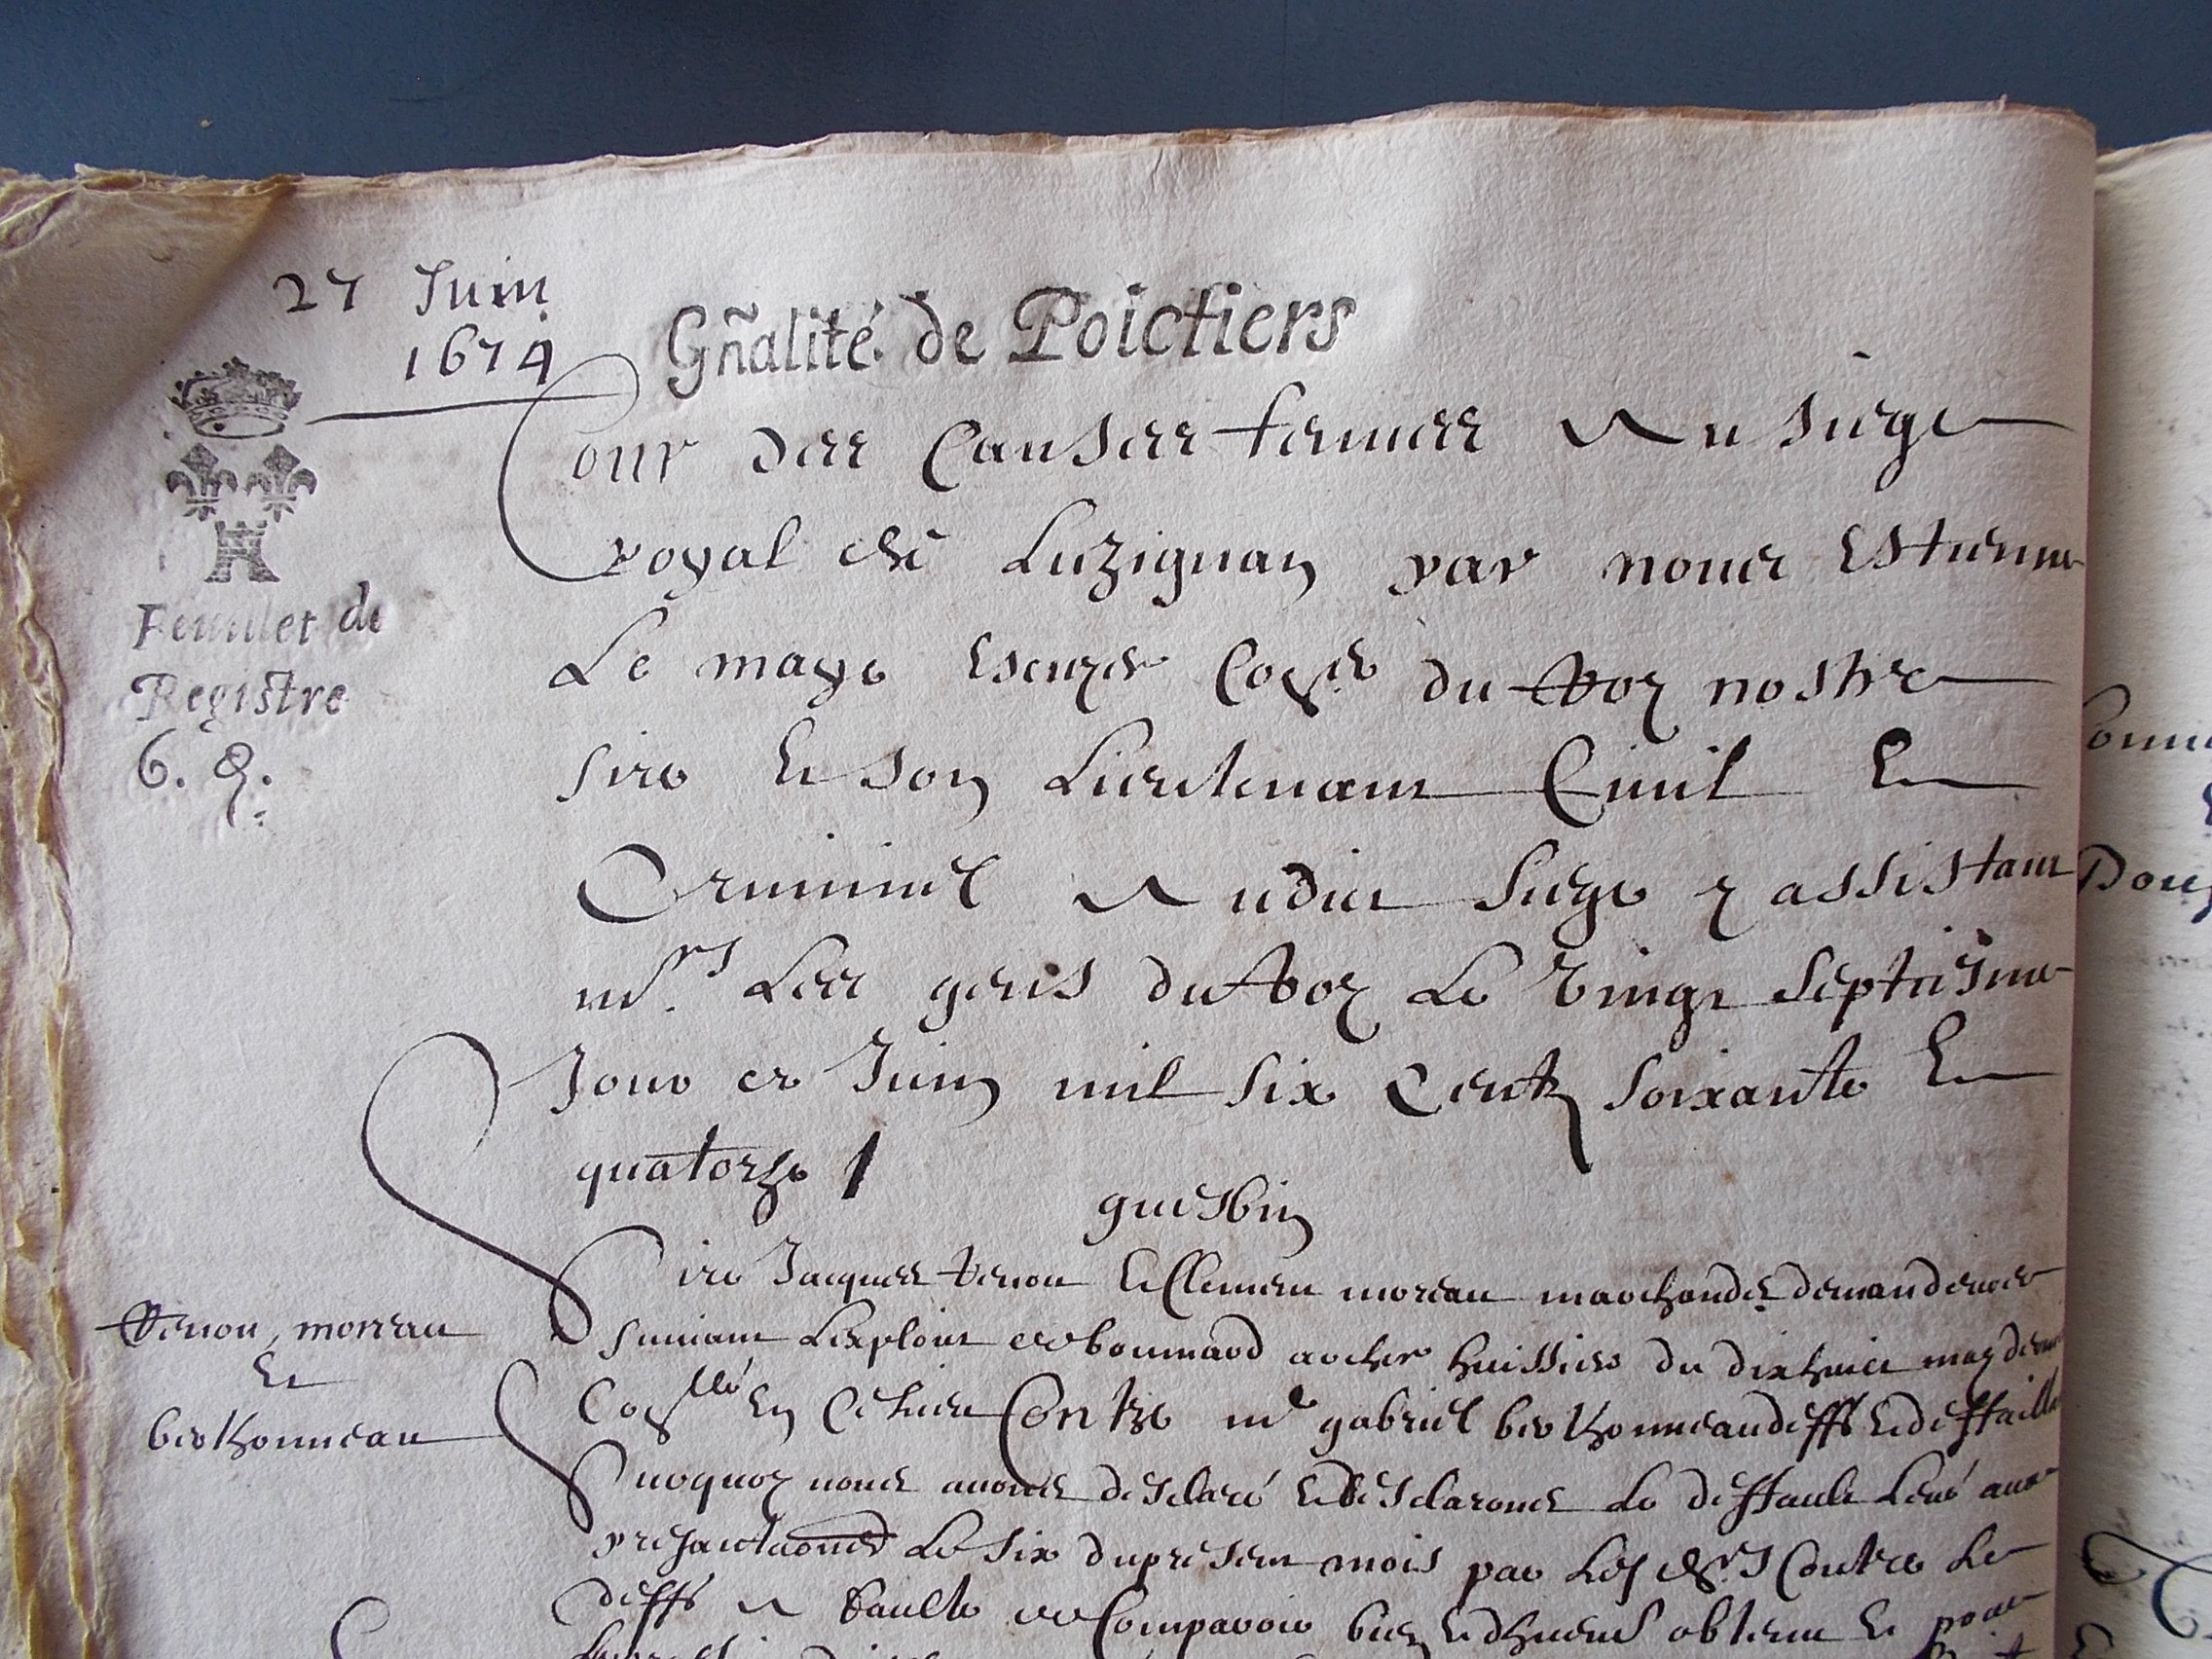 27 Juin
1674
Gñalité de Poictiers
Feuillet de
Registre
6. d.
Cour des Causes tenues Au siege
royal de Luzignan par nous Estienne
Le maye Escuyer Coner du Roy nostre
sire Et son Lieutenant Civil Et
Criminel Audict siege y assistant
mrs Les gens du Roy Le Vingt septiesme
Jour de Juin mil six Centz soixante Et
quatorze /
Sire Jacques Venou Et Clement moreau marchandz demandeurs
suivant Lexploict de bonnard archer huissier du dixhuict may
Venou, moreau
Et
berthonneau
Contre me gabriel berthonneau deffr Et deffaillant
nous avons desclaré Et desclarons Le deffault Levé aux
presentaons Le six du present mois par Les drs Contre Le
deffr A faulte de Comparoir bien Et obtenu Et pour